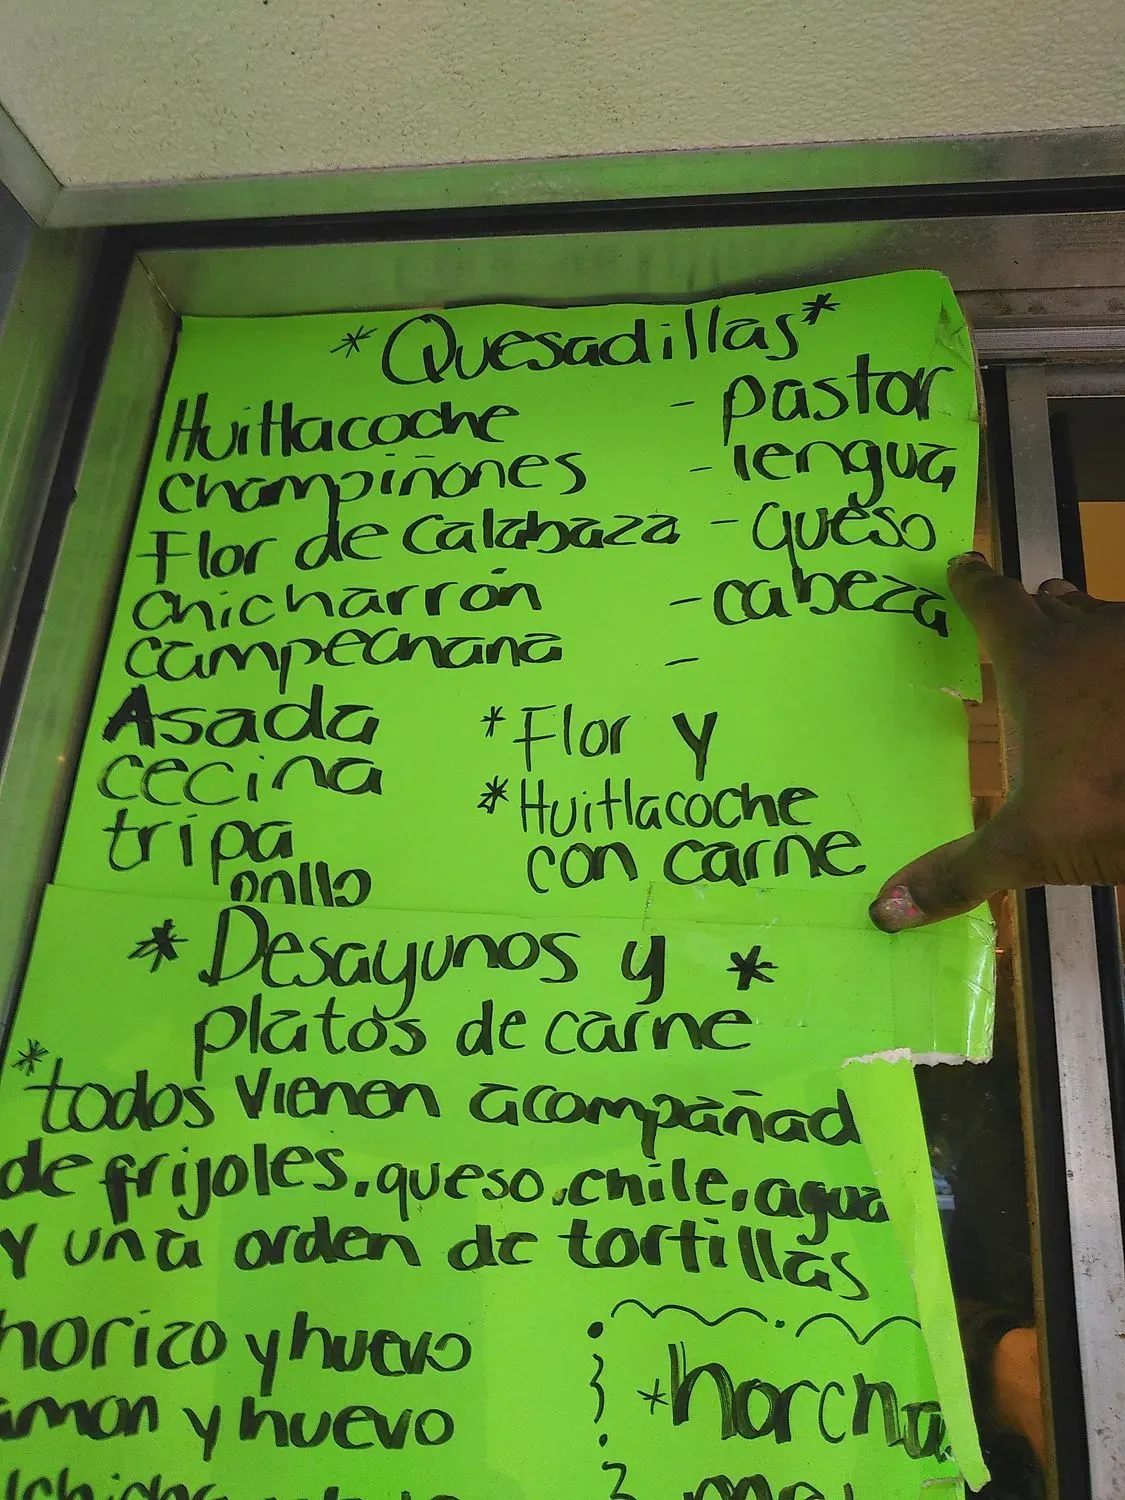 *Quesadillas*
Huitlacoche - pastor
champiñones - lengua
Flor de calabaza - queso
chicharrón - cabeza
campechana -
Asada
cecina
tripa
pollo
*Flor y
*Huitlacoche
con carne
*Desayunos y *
platos de carne
*todos vienen acompañad
de frijoles, queso, chile, agua
y una orden de tortillas
horizo y huevo
amon y huevo
*horcha